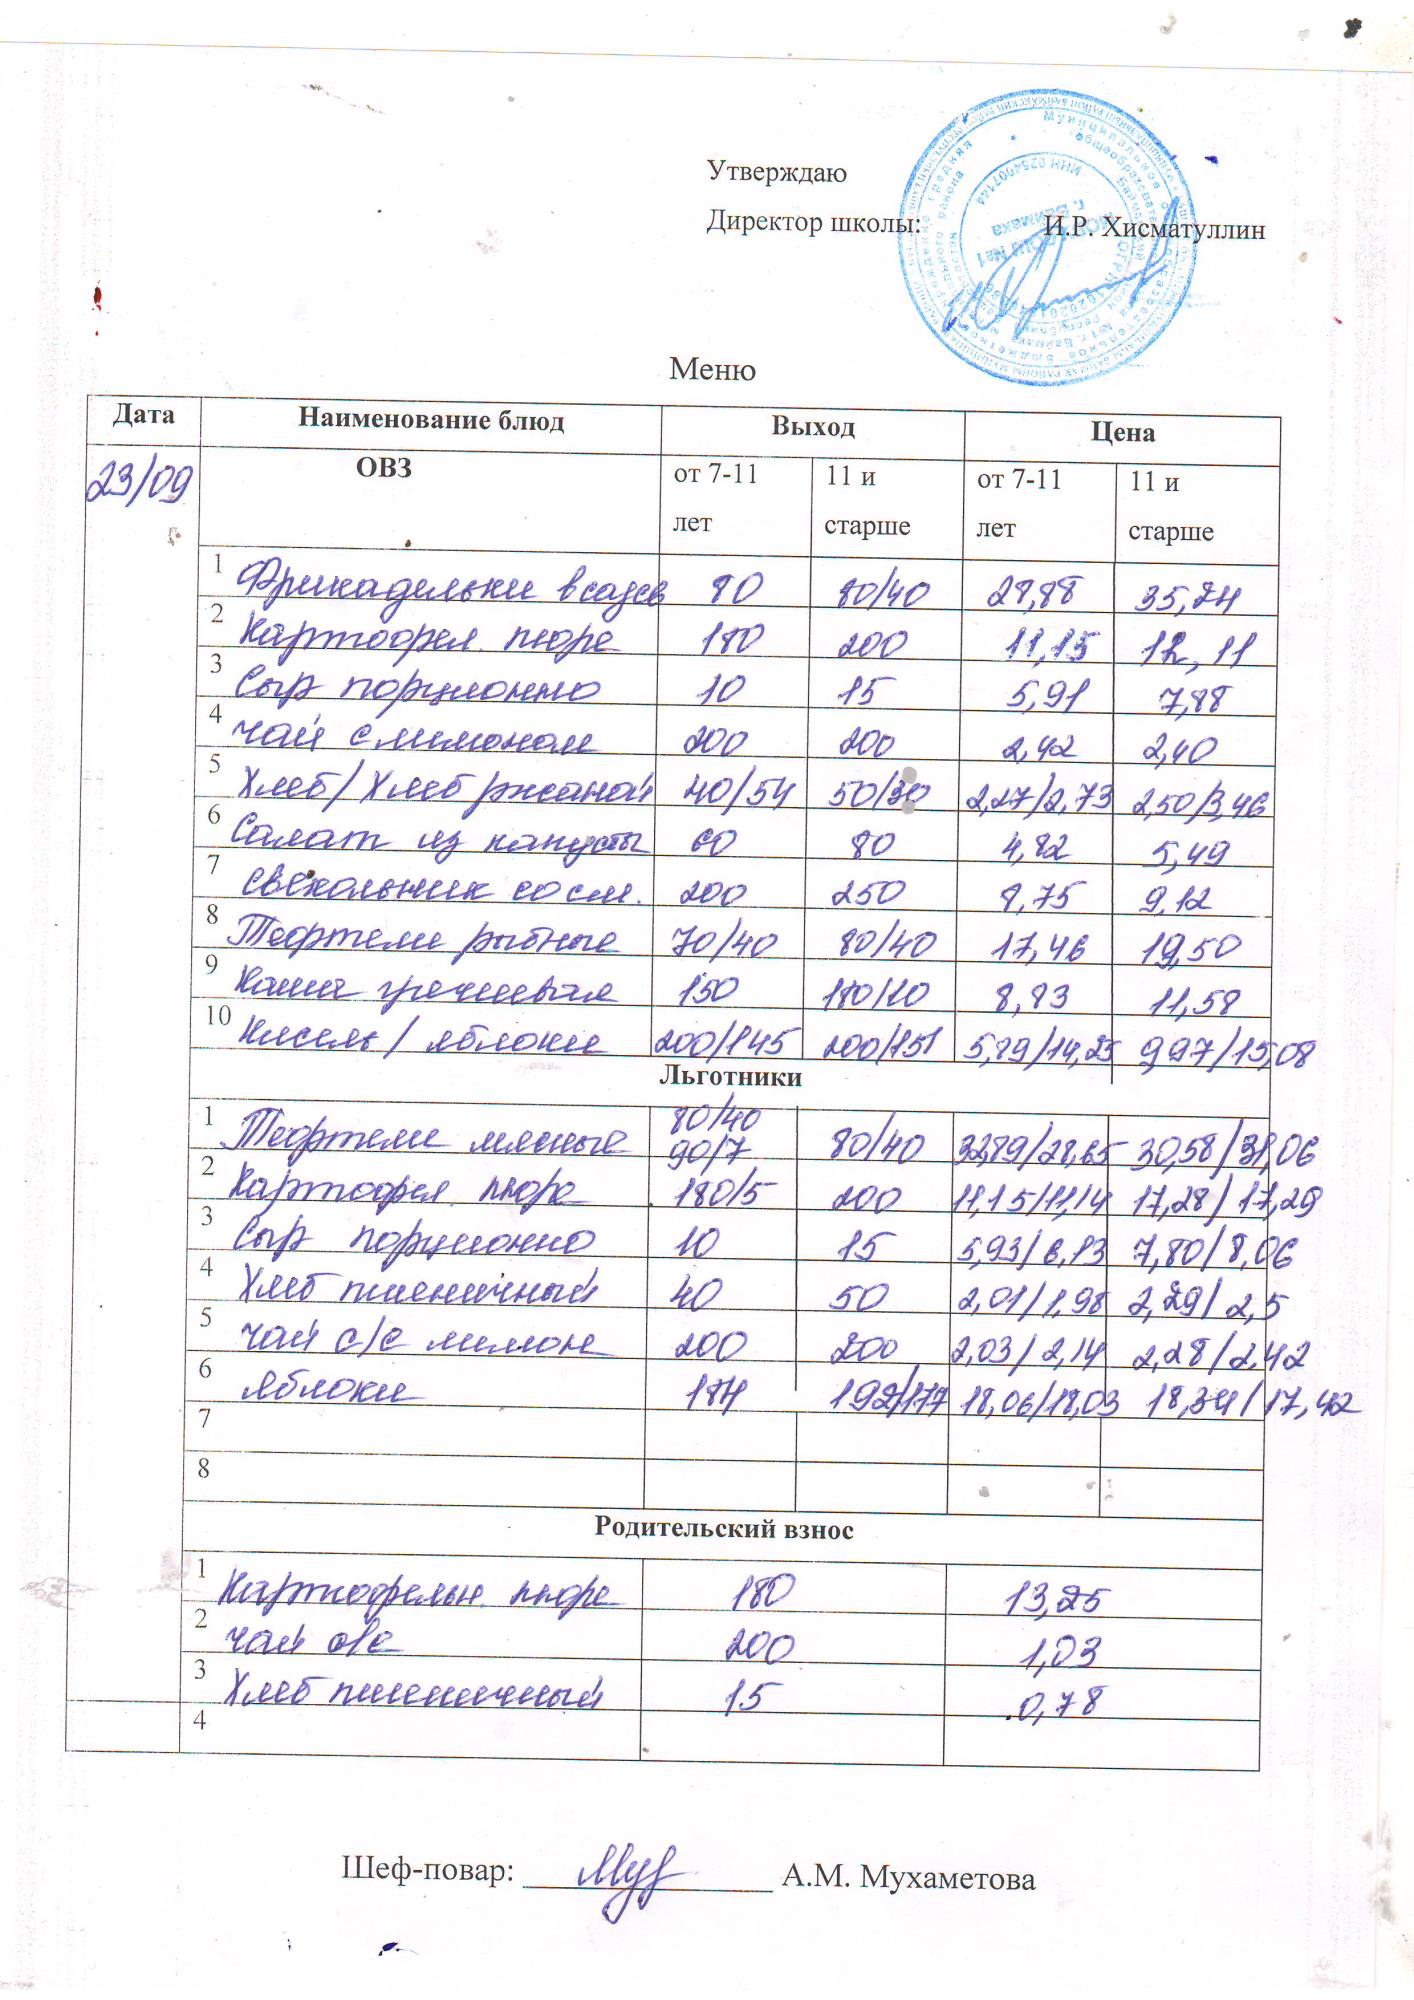 Утверждаю
Директор школы: И.Р. Хисматуллин
ИНН 0254007144
Меню
Дата Наименование блюд Выход Цена
23/09 ОВЗ от 7-11 лет 11 и старше от 7-11 лет 11 и старше
1 Фрикадельки в соусе 80 80/40 28,88 35,24
2 Картофел. пюре 180 200 11,15 12,11
3 Сыр порционно 10 15 5,91 7,88
4 Чай с лимоном 200 200 2,42 2,40
5 Хлеб/Хлеб ржаной 40/54 50/30 2,27/2,73 2,50/3,46
6 Салат из капусты 60 80 4,82 5,49
7 Свекольник со см. 200 250 8,75 9,12
8 Тефтели рыбные 70/40 80/40 17,46 19,50
9 Каша гречневая 150 180/10 8,83 11,58
10 Кисель/яблоки 200/145 200/151 5,89/14,25 9 97/15,08
Льготники
1 Тефтели мясные 80/40 90/7 80/40 32,89/28,65 30,58/31,06
2 Картофел. пюре 180/5 200 11,15/11,14 17,28/17,29
3 Сыр порционно 10 15 5,93/6,13 7,80/8,06
4 Хлеб пшеничный 40 50 2,01/1,98 2,29/2,5
5 Чай с/с лимон 200 200 2,03/2,14 2,28/2,42
6 Яблоки 184 192/177 18,06/18,03 18,34/17,42
7
8
Родительский взнос
1 Картофельн. пюре 180 13,25
2 Чай с/с 200 1,03
3 Хлеб пшеничный 15 0,78
4
Шеф-повар: А.М. Мухаметова